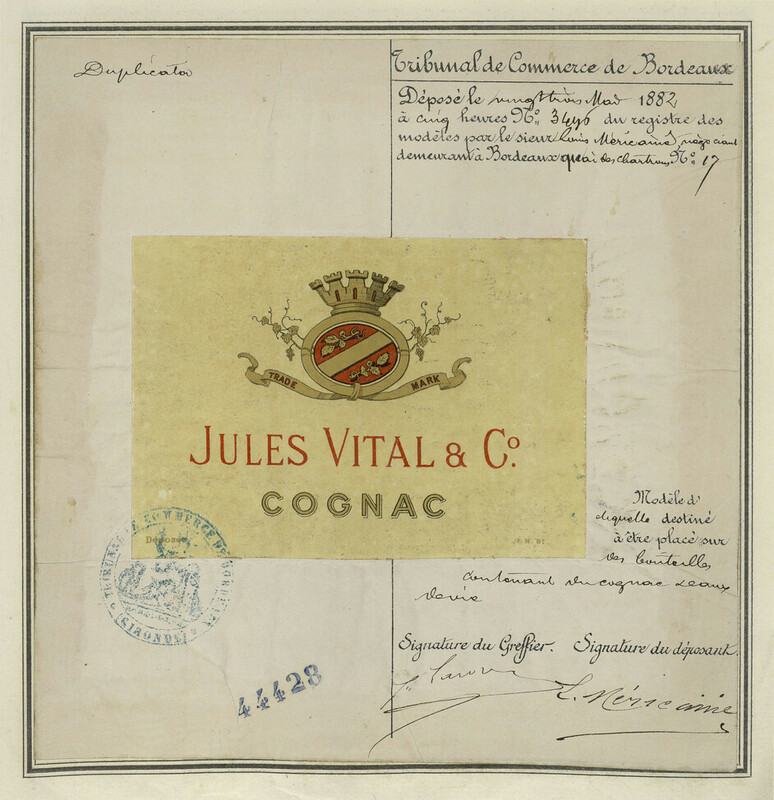 Duplicata
Tribunal de Commerce de Bordeaux
Déposé le vingt trois Mai 1882
à cinq heures No. 3496 du registre des
modèles par le sieur Louis Méricaine, négociant
demeurant à Bordeaux quai des chartrons No. 17
TRADE MARK
JULES VITAL & Co.
COGNAC
Déposée
TRIBUNAL DE COMMERCE DE BORDEAUX
(GIRONDE)
Modèle d'
étiquette destiné
à être placé sur
des bouteilles
contenant du cognac
de vie
Signature du Greffier. Signature du déposant.
L. Méricaine
44428